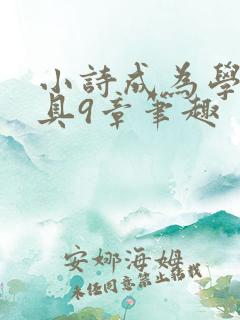 小詩成為學
具9章筆趣
安娜海姆
未經同意禁止轉載